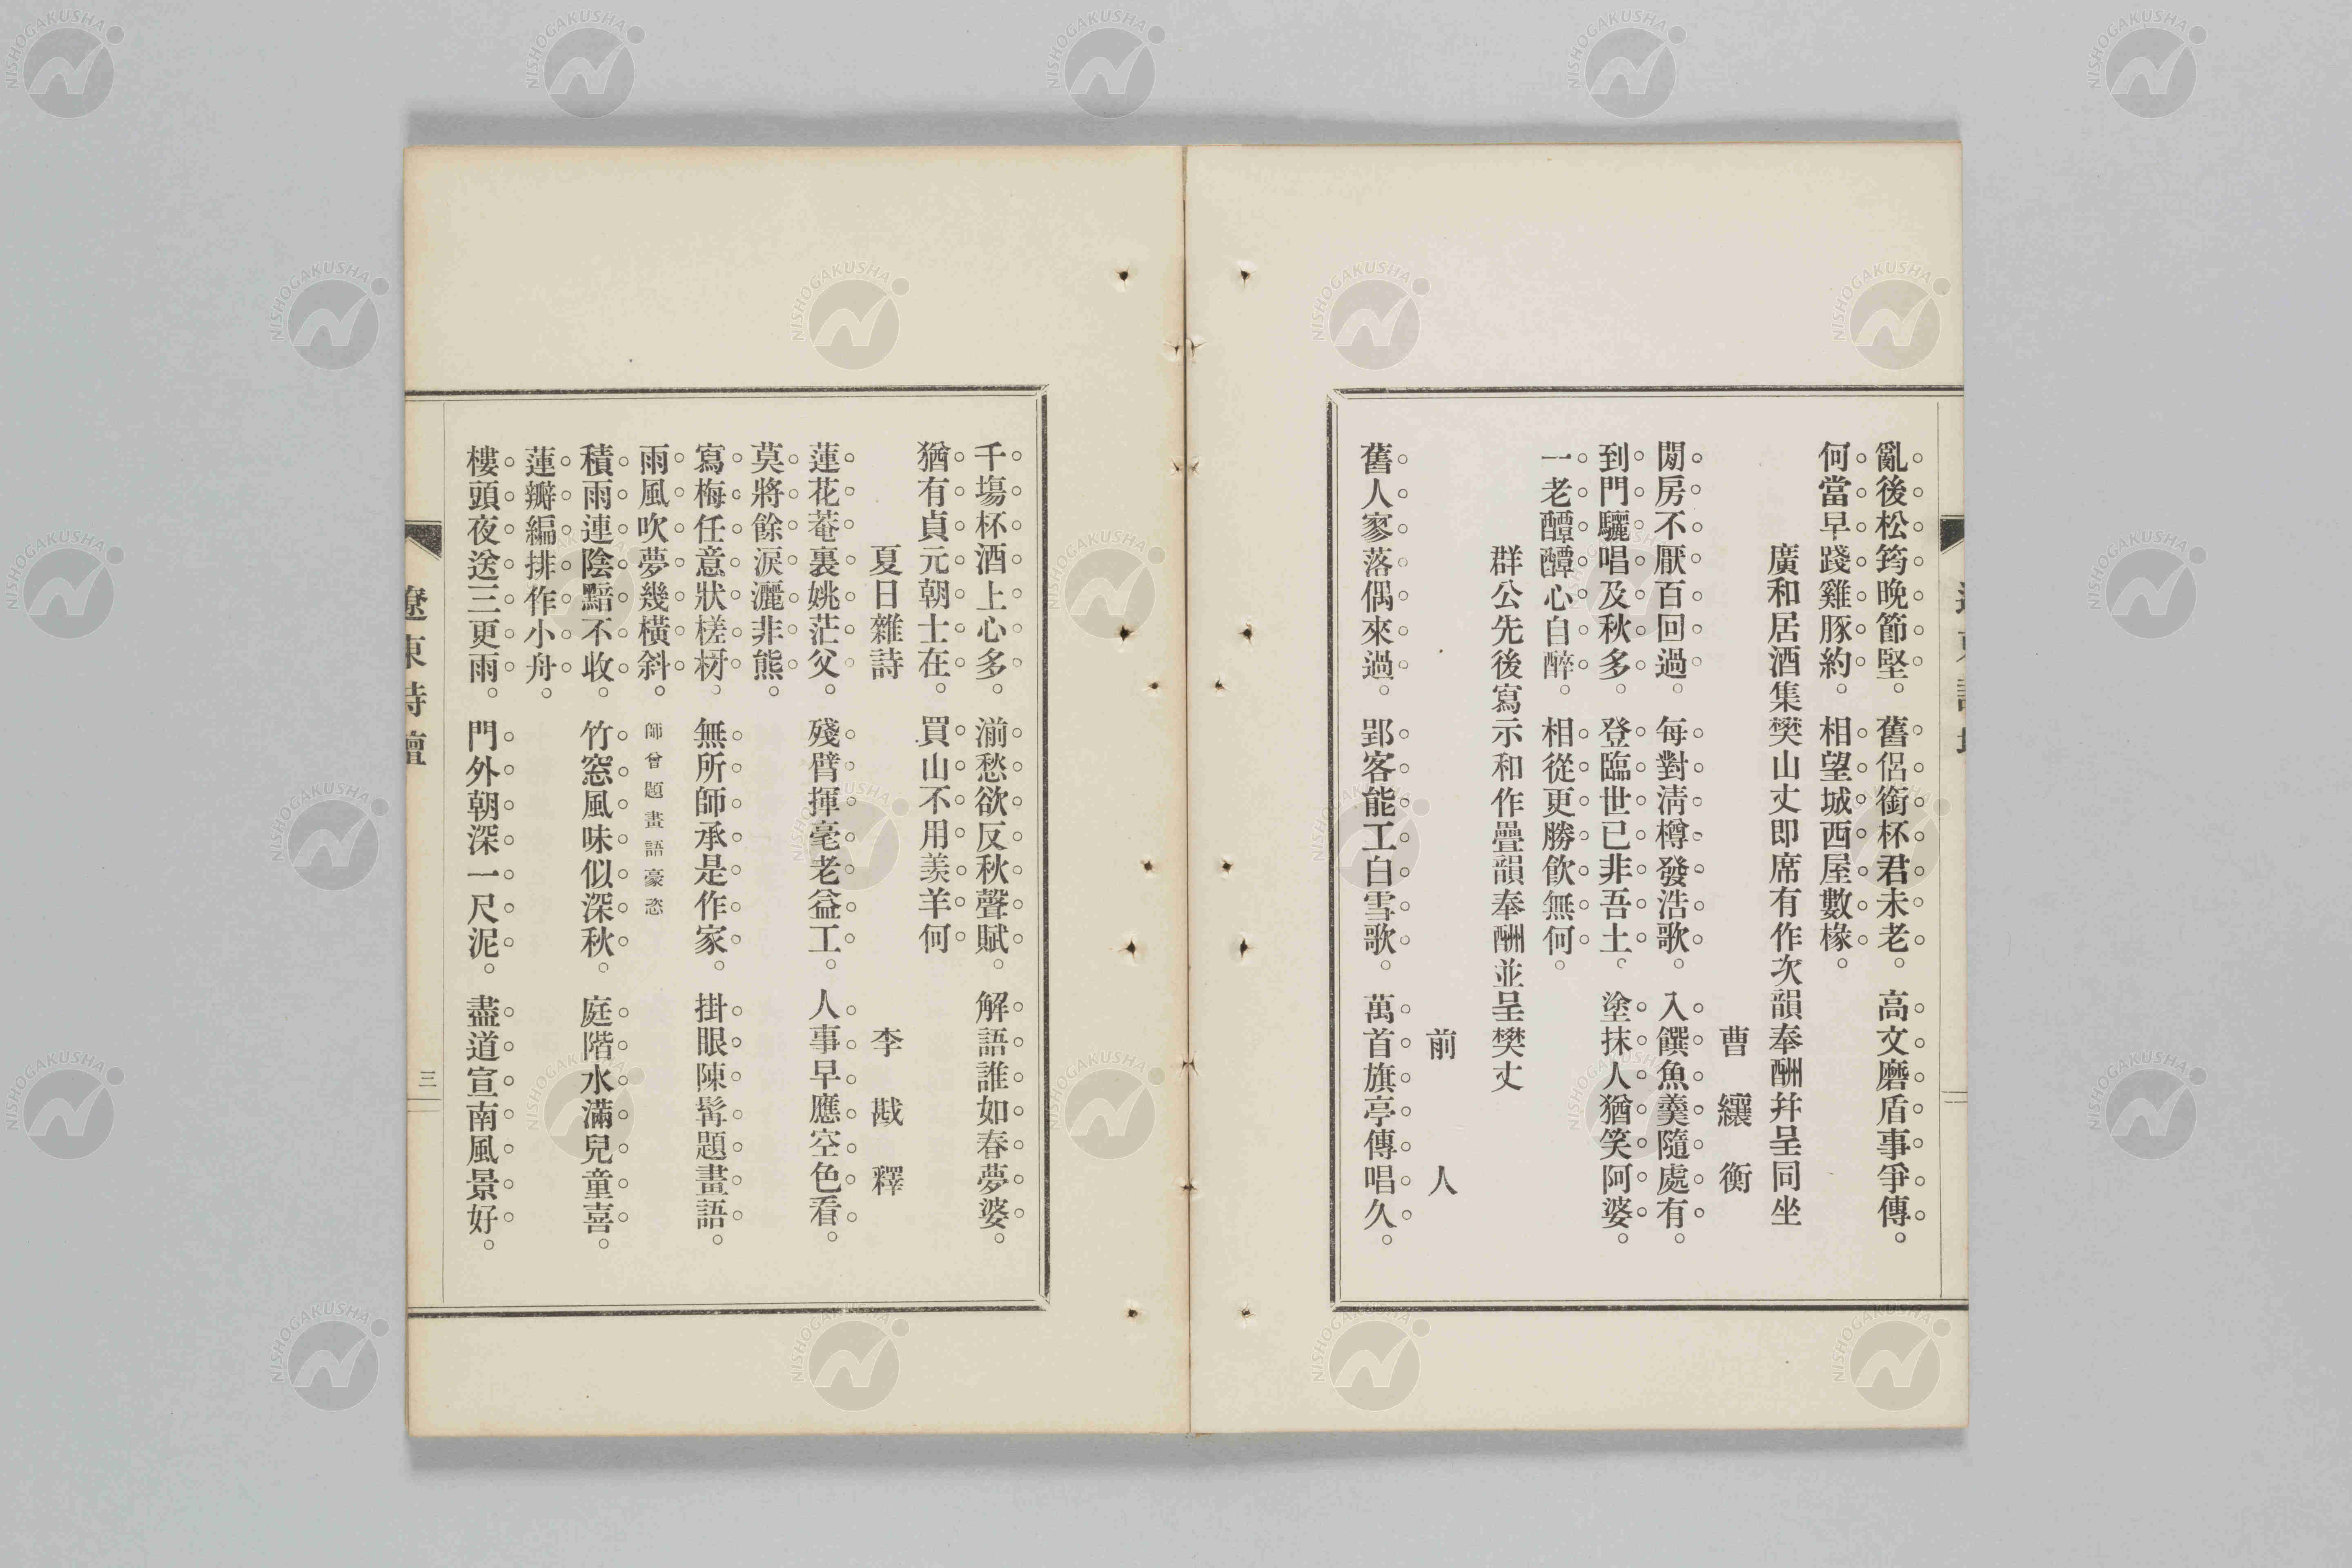 亂後松筠晚節堅。舊侶銜杯君未老。高文磨盾事爭傳。
何當早踐雞豚約。相望城西屋數椽。
廣和居酒集樊山丈卽席有作次韻奉酬幷呈同坐
曹纕衡
閒房不厭百回過。每對淸樽發浩歌。入饌魚羹隨處有。
到門驪唱及秋多。登臨世已非吾土。塗抹人猶笑阿婆。
一老醰醰心自醉。相從更勝飮無何。
群公先後寫示和作疊韻奉酬並呈樊丈
前人
舊人寥落偶來過。郢客能工白雪歌。萬首旗亭傳唱久。
千塲杯酒上心多。湔愁欲反秋聲賦。解語誰如春夢婆。
猶有貞元朝士在。買山不用羨羊何
夏日雜詩
李戡釋
蓮花菴裏姚茫父。殘臂揮毫老益工。人事早應空色看。
莫將餘淚灑非熊。
寫梅任意狀槎枒。無所師承是作家。掛眼陳髯題畫語。
雨風吹夢幾橫斜。師曾題畫語豪恣
積雨連陰黯不收。竹窓風味似深秋。庭階水滿兒童喜。
蓮瓣編排作小舟。
樓頭夜送三更雨。門外朝深一尺泥。盡道宣南風景好。
遼東詩壇
三
NISHOGAKUSHA